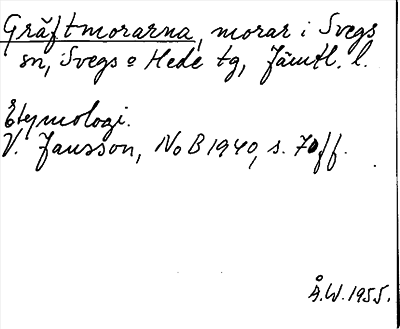 Gräftmorarna, morar i Svegs
sn, Svegs o Hede tg, Jämtl. l.
Etymologi.
V. Jansson, NoB 1940, s. 70ff.
Å.W. 1955.